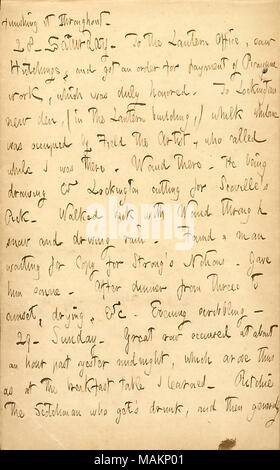 finishing it throughout.
28. Saturday. To the Lantern Office, saw
Hutchings, and got an order for payment of
work, which was duly honored. To Lockington
new den, (in the Lantern building,) which
was occupied by Field the Artist, who called
while I was there. Waud there; He being
drawing & Lockington cutting for Scoville's
Pick. Walked back with Waud through
snow and driving rain. Found a man
waiting for Copy for Strong's Notions. Gave
him some. After dinner from three to
sunset, drawing, &c. Evening scribbling.
29. Sunday. Great row occurred at about
an hour past yester midnight, which arose thus
as at the breakfast table I learned. Ritchie
the Scotchman who gets drunk, and then generally
alamy
Image ID: MAKP01
www.alamy.com